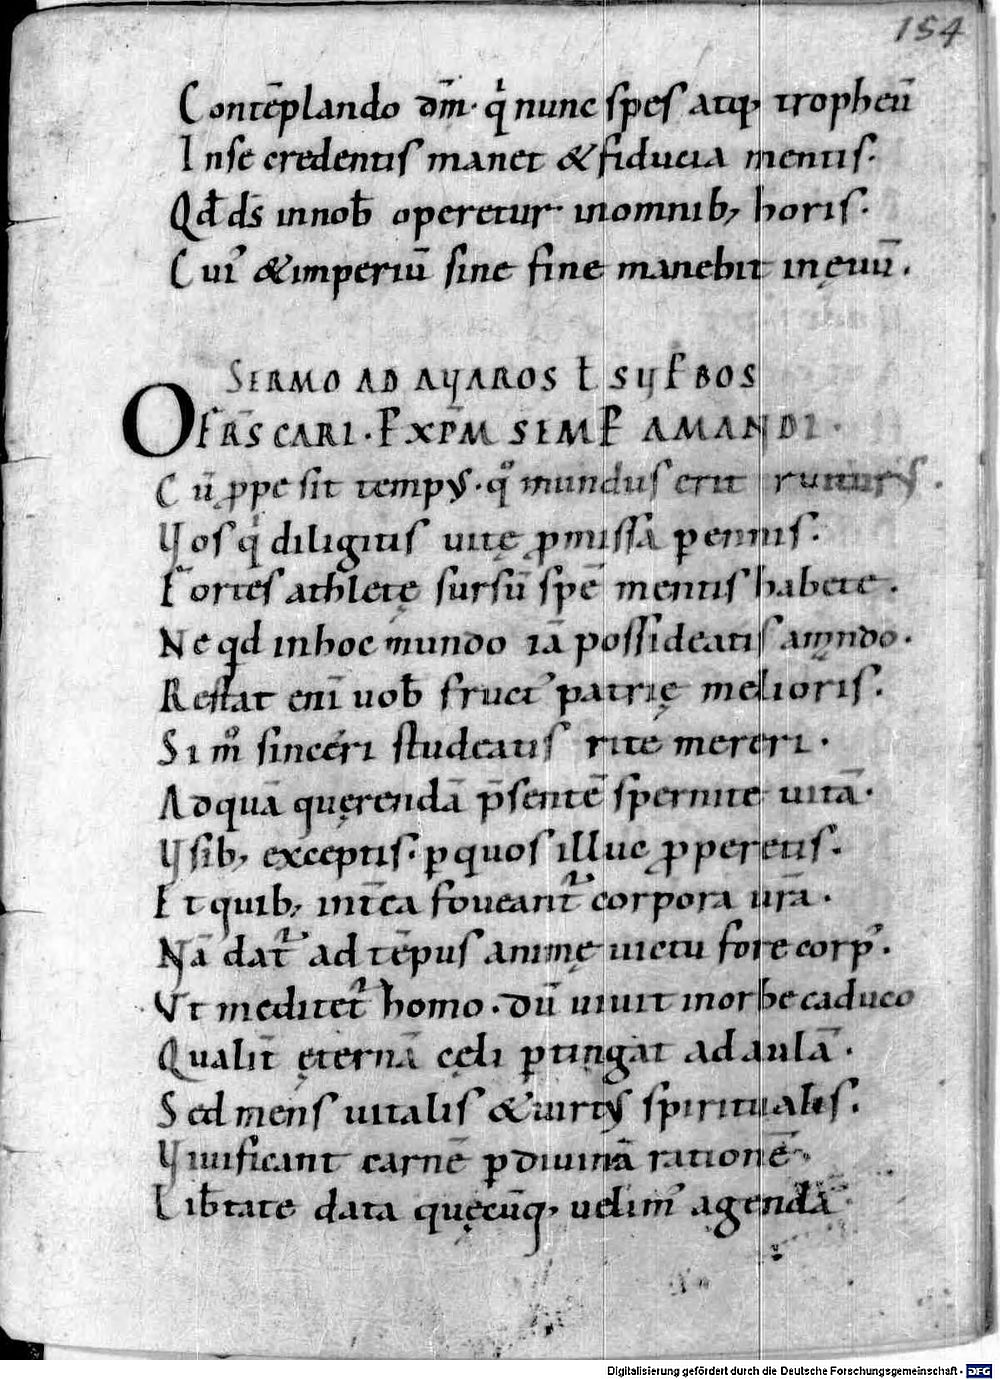 154
Contēplando dm̄· q̇ nunc spes atq; tropheū
Inse credentis manet & fiducia mentis·
Qđ ds̄ innob̄ operetur inomnib; horis·
Cui' & imperiū sine fine manebit inęuū.
SERMO AD AVAROS ł SVPBOS
O FRS̄ CARI· P XP̄M SEMP AMANDI·
Cū ꝓpe sit tempus· qͦ mundus erit ruiturus.
Vos q̇ diligitis uitę ꝓmissa ꝑennis·
Fortes athletę sursū spē mentis habete·
Ne qd inhoc mundo iā possideatis amando·
Restat eni uob̄ fruct' patrię melioris·
Si m̊ sincéri studeatis rite mereri·
Adquā querendā p̄sentē spernite uitā·
Vsib; exceptis· ꝑquos illuc ꝓperetis·
Et quib; int̄ea foueant̄ corpora ur̄a·
Nā dat̄ ad tēpus animę uictu fore corp'·
Vt meditet̄ homo· dū uiuit inorbe caduco
Qualit̄ ęternā cęli ꝑtingat adaulā·
Sed mens uitalis & uirtus spiritualis·
Viuificant carnē ꝑ diuinā rationē·
Lib̄tate data quęcūq; uelim' agendā
Digitalisierung gefördert durch die Deutsche Forschungsgemeinschaft - DFG